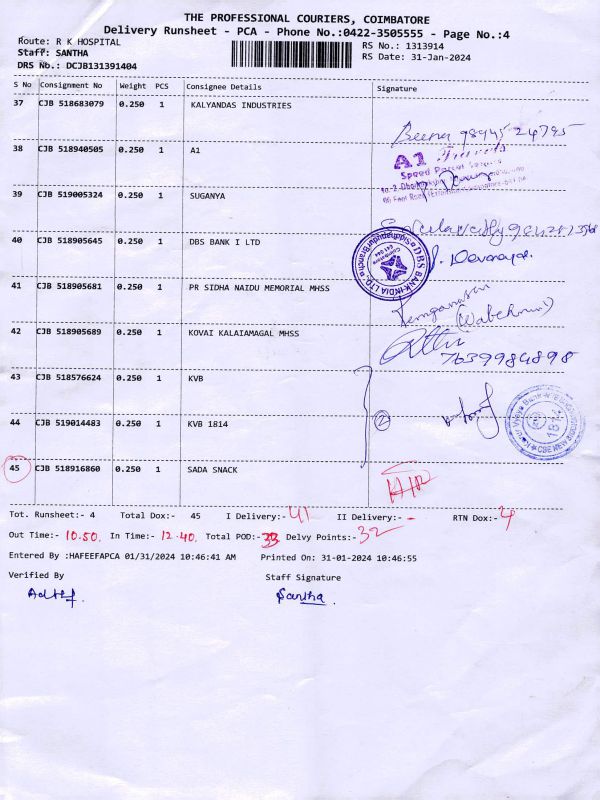 THE PROFESSIONAL COURIERS, COIMBATORE
Delivery Runsheet - PCA - Phone No.:0422-3505555 - Page No.:4
Route: R K HOSPITAL
RS No.: 1313914
Staff: SANTHA
RS Date: 31-Jan-2024
DRS No.: DCJB131391404
S No Consignment No Weight PCS Consignee Details Signature
37 CJB 518683079 0.250 1 KALYANDAS INDUSTRIES
Beena 98945 24795
38 CJB 518940505 0.250 1 A1
A1
Speed Parcel
39 CJB 519005324 0.250 1 SUGANYA
40 CJB 518905645 0.250 1 DBS BANK I LTD
DBS BANK INDIA LTD
Siddhapudur Branch
Coimbatore
641 044
Devaraja
41 CJB 518905681 0.250 1 PR SIDHA NAIDU MEMORIAL MHSS
42 CJB 518905689 0.250 1 KOVAI KALAIAMAGAL MHSS
7639984898
43 CJB 518576624 0.250 1 KVB
2
44 CJB 519014483 0.250 1 KVB 1814
45 CJB 518916860 0.250 1 SADA SNACK
Tot. Runsheet:- 4 Total Dox:- 45 I Delivery:- 41 II Delivery:- - RTN Dox:- 4
Out Time:- 10.50. In Time:- 12.40. Total POD:- 33 Delvy Points:- 32
Entered By :HAFEEFAPCA 01/31/2024 10:46:41 AM Printed On: 31-01-2024 10:46:55
Verified By Staff Signature
Santha.